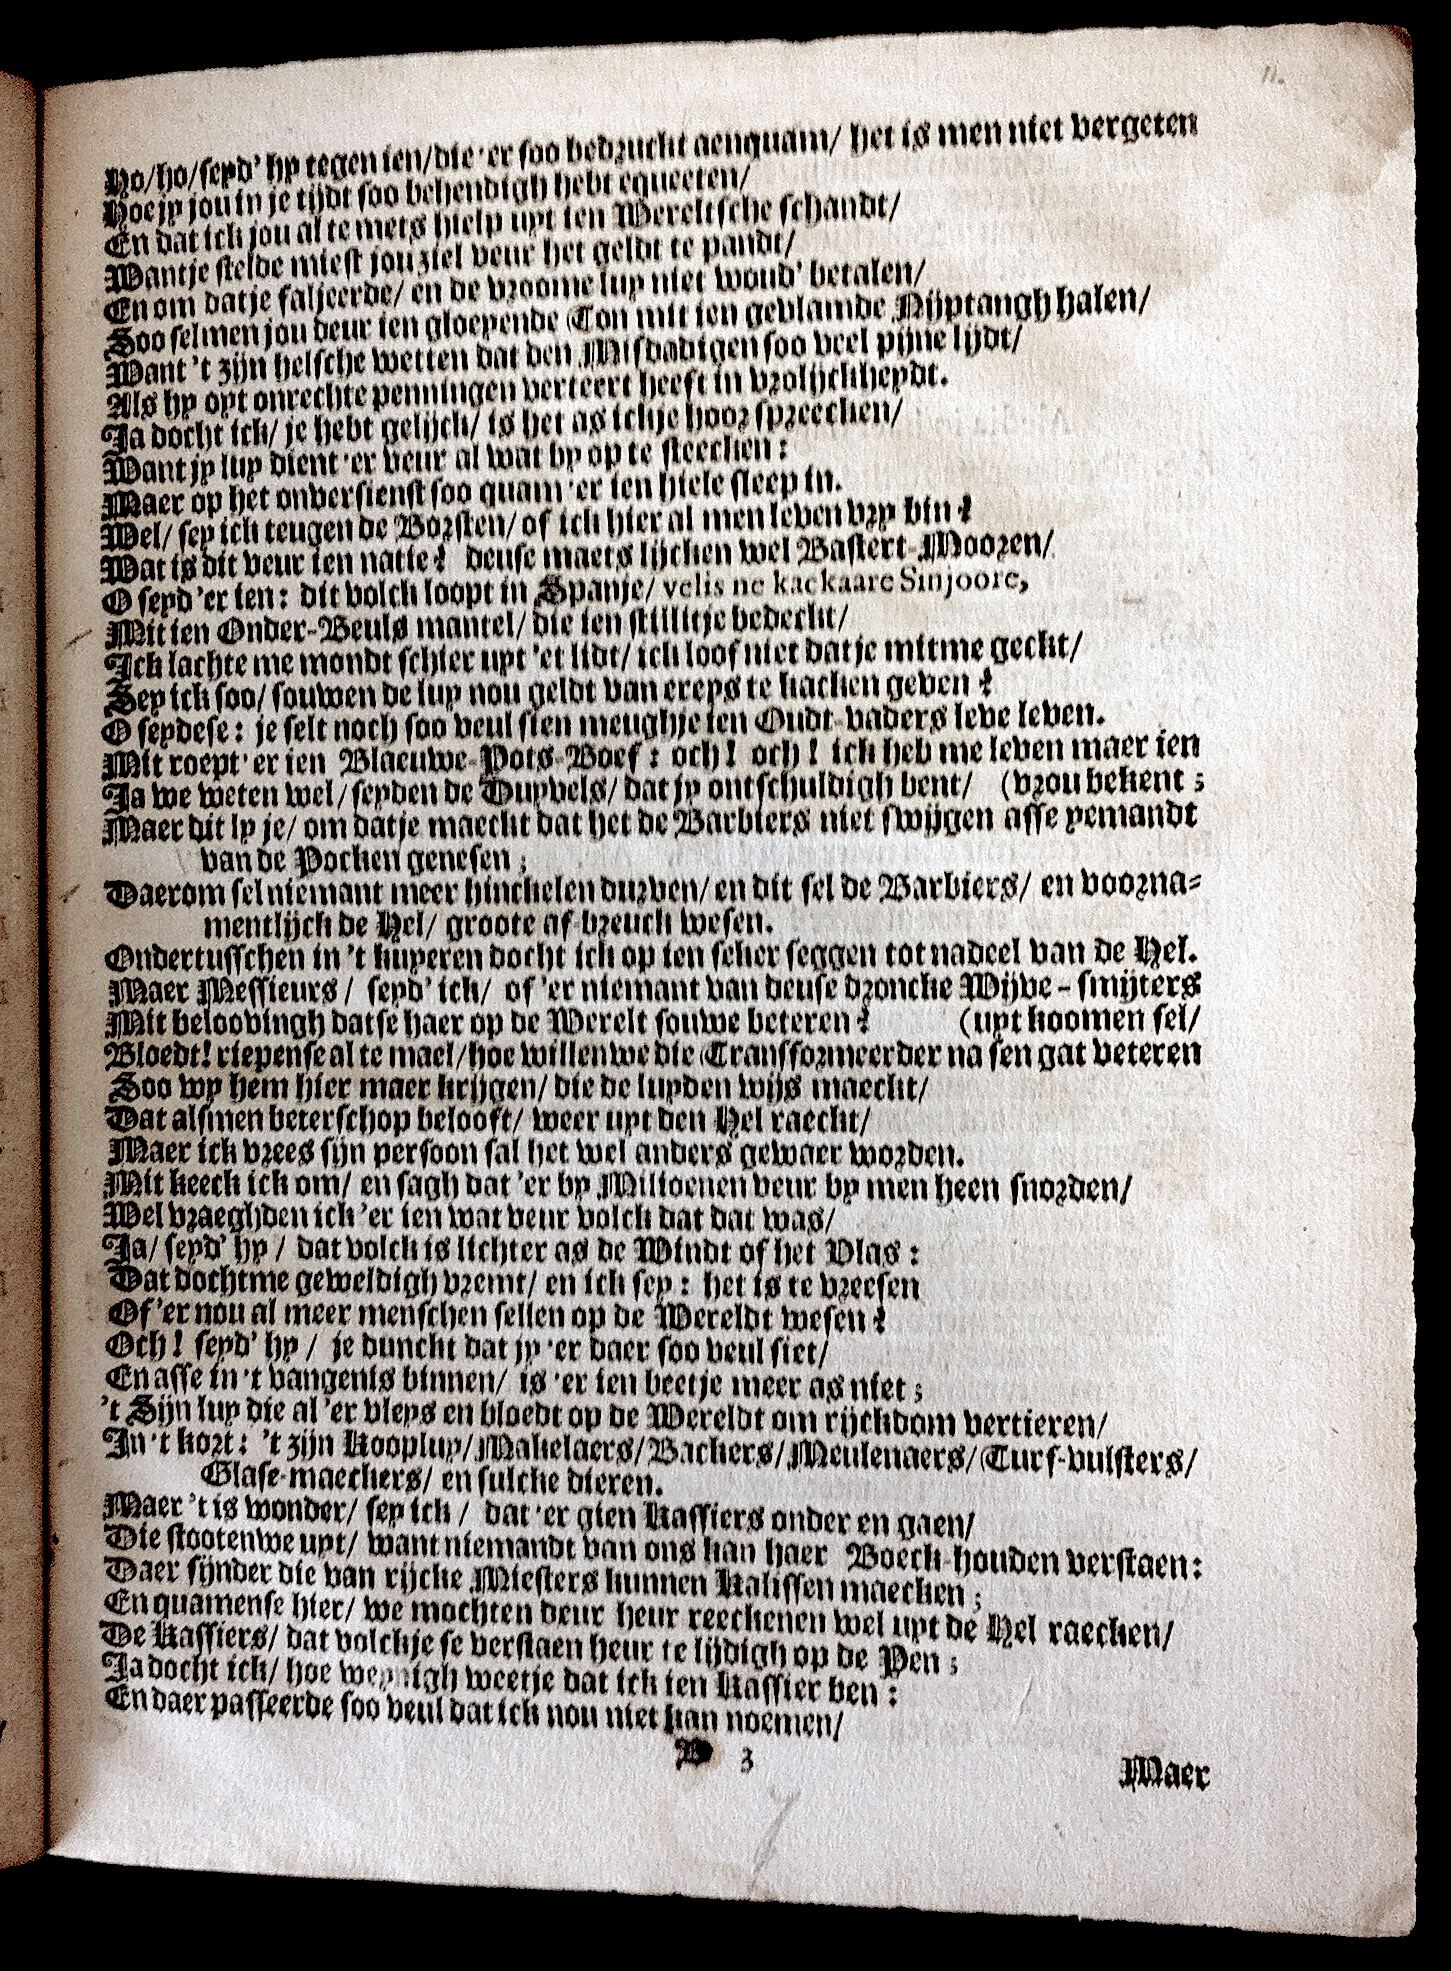 11.
Ho/ho/seyd' hy tegen ien/die 'er soo bedrucht aenquam/ het is men niet vergeten
Hoe jy jou in je tijdt soo behendigh hebt equeeten/
En dat ick jou al te mets hielp uyt ien Wereltsche schandt/
Want je stelde miest jou ziel veur het geldt te pandt/
En om datje faljeerde/ en de vroome luy niet woud' betalen/
Soo selmen jou deur ien gloeyende Ton mit ien gevlamde Nijptangh halen/
Want 't zijn helsche wetten dat den Misdadigen soo veel pijne lijdt/
Als hy opt onrechte penningen verteert heeft in vrolijckheydt.
Ja docht ick/ je hebt gelijck/ is het as ickje hoor spreecken/
Want jy luy dient 'er veur al wat by op te steecken:
Maer op het onversienst soo quam 'er ien hiele sleep in.
Wel/ sey ick teugen de Borsten/ of ick hier al men leven vry bin?
Wat is dit veur ien natie? deuse maets lijcken wel Bastert-Mooren/
O seyd 'er ien: dit volck loopt in Spanje/ velis ne kackaare Sinjoore,
Mit ien Onder-Beuls mantel/ die ien stillitje bedeckt/
Ick lachte me mondt schier uyt 'et lidt/ ick loof niet datje mitme geckt/
Sey ick soo/ souwen de luy nou geldt van ereys te kacken geven?
O seydese: je selt noch soo veul sien meughje ien Oudt-vaders leve leven.
Mit roept 'er ien Blaeuwe-Pots-Boef: och! och! ick heb me leven maer ien
Ja we weten wel/ seyden de Duyvels/ dat jy ontschuldigh bent/ (vrou bekent;
Maer dit ly je/ om datje maeckt dat het de Barbiers niet swijgen asse yemandt
van de Pocken genesen;
Daerom sel niemant meer hinckelen durven/ en dit sel de Barbiers/ en voorna-
mentlijck de Hel/ groote af-breuck wesen.
Ondertusschen in 't kuyeren docht ick op ien seker seggen tot nadeel van de Hel.
Maer Messieurs/ seyd' ick/ of 'er niemant van deuse droncke Wijve-smijters
Mit beloovingh datse haer op de Werelt souwe beteren? (uyt koomen sel/
Bloedt! riepense al te mael/hoe willenwe die Transformeerder na sen gat veteren
Soo wy hem hier maer krijgen/ die de luyden wijs maeckt/
Dat alsmen beterschop belooft/ weer uyt den Hel raeckt/
Maer ick vrees sijn persoon sal het wel anders gewaer worden.
Mit keeck ick om/ en sagh dat 'er by Milioenen veur by men heen snorden/
Wel vraeghden ick 'er ien wat veur volck dat dat was/
Ja/ seyd' hy/ dat volck is lichter as de Windt of het Vlas:
Dat dochtme geweldigh vremt/ en ick sey: het is te vreesen
Of 'er nou al meer menschen sellen op de Wereldt wesen?
Och! seyd' hy/ je dunckt dat jy 'er daer soo veul siet/
En asse in 't vangenis binnen/ is 'er ien beetje meer as niet;
't Sijn luy die al 'er vleys en bloedt op de Wereldt om rijckdom vertieren/
In 't kort: 't zijn Kooplup/Makelaers/Backers/Meulenaers/Turf-vulsters/
Glase-maeckers/ en sulcke dieren.
Maer 't is wonder/ sey ick/ dat 'er gien Kassiers onder en gaen/
Die stootenwe uyt/ want niemandt van ons kan haer Boeck-houden verstaen:
Daer sijnder die van rijcke Miesters kunnen Kalissen maecken;
En quamense hier/ we mochten deur heur reeckenen wel uyt de Hel raecken/
De Kassiers/ dat volckje se verstaen heur te lijdigh op de Pen;
Ja docht ick/ hoe weynigh weetje dat ick ien Kassier ben:
En daer passeerde soo veul dat ick nou niet kan noemen/
B 3
Maer